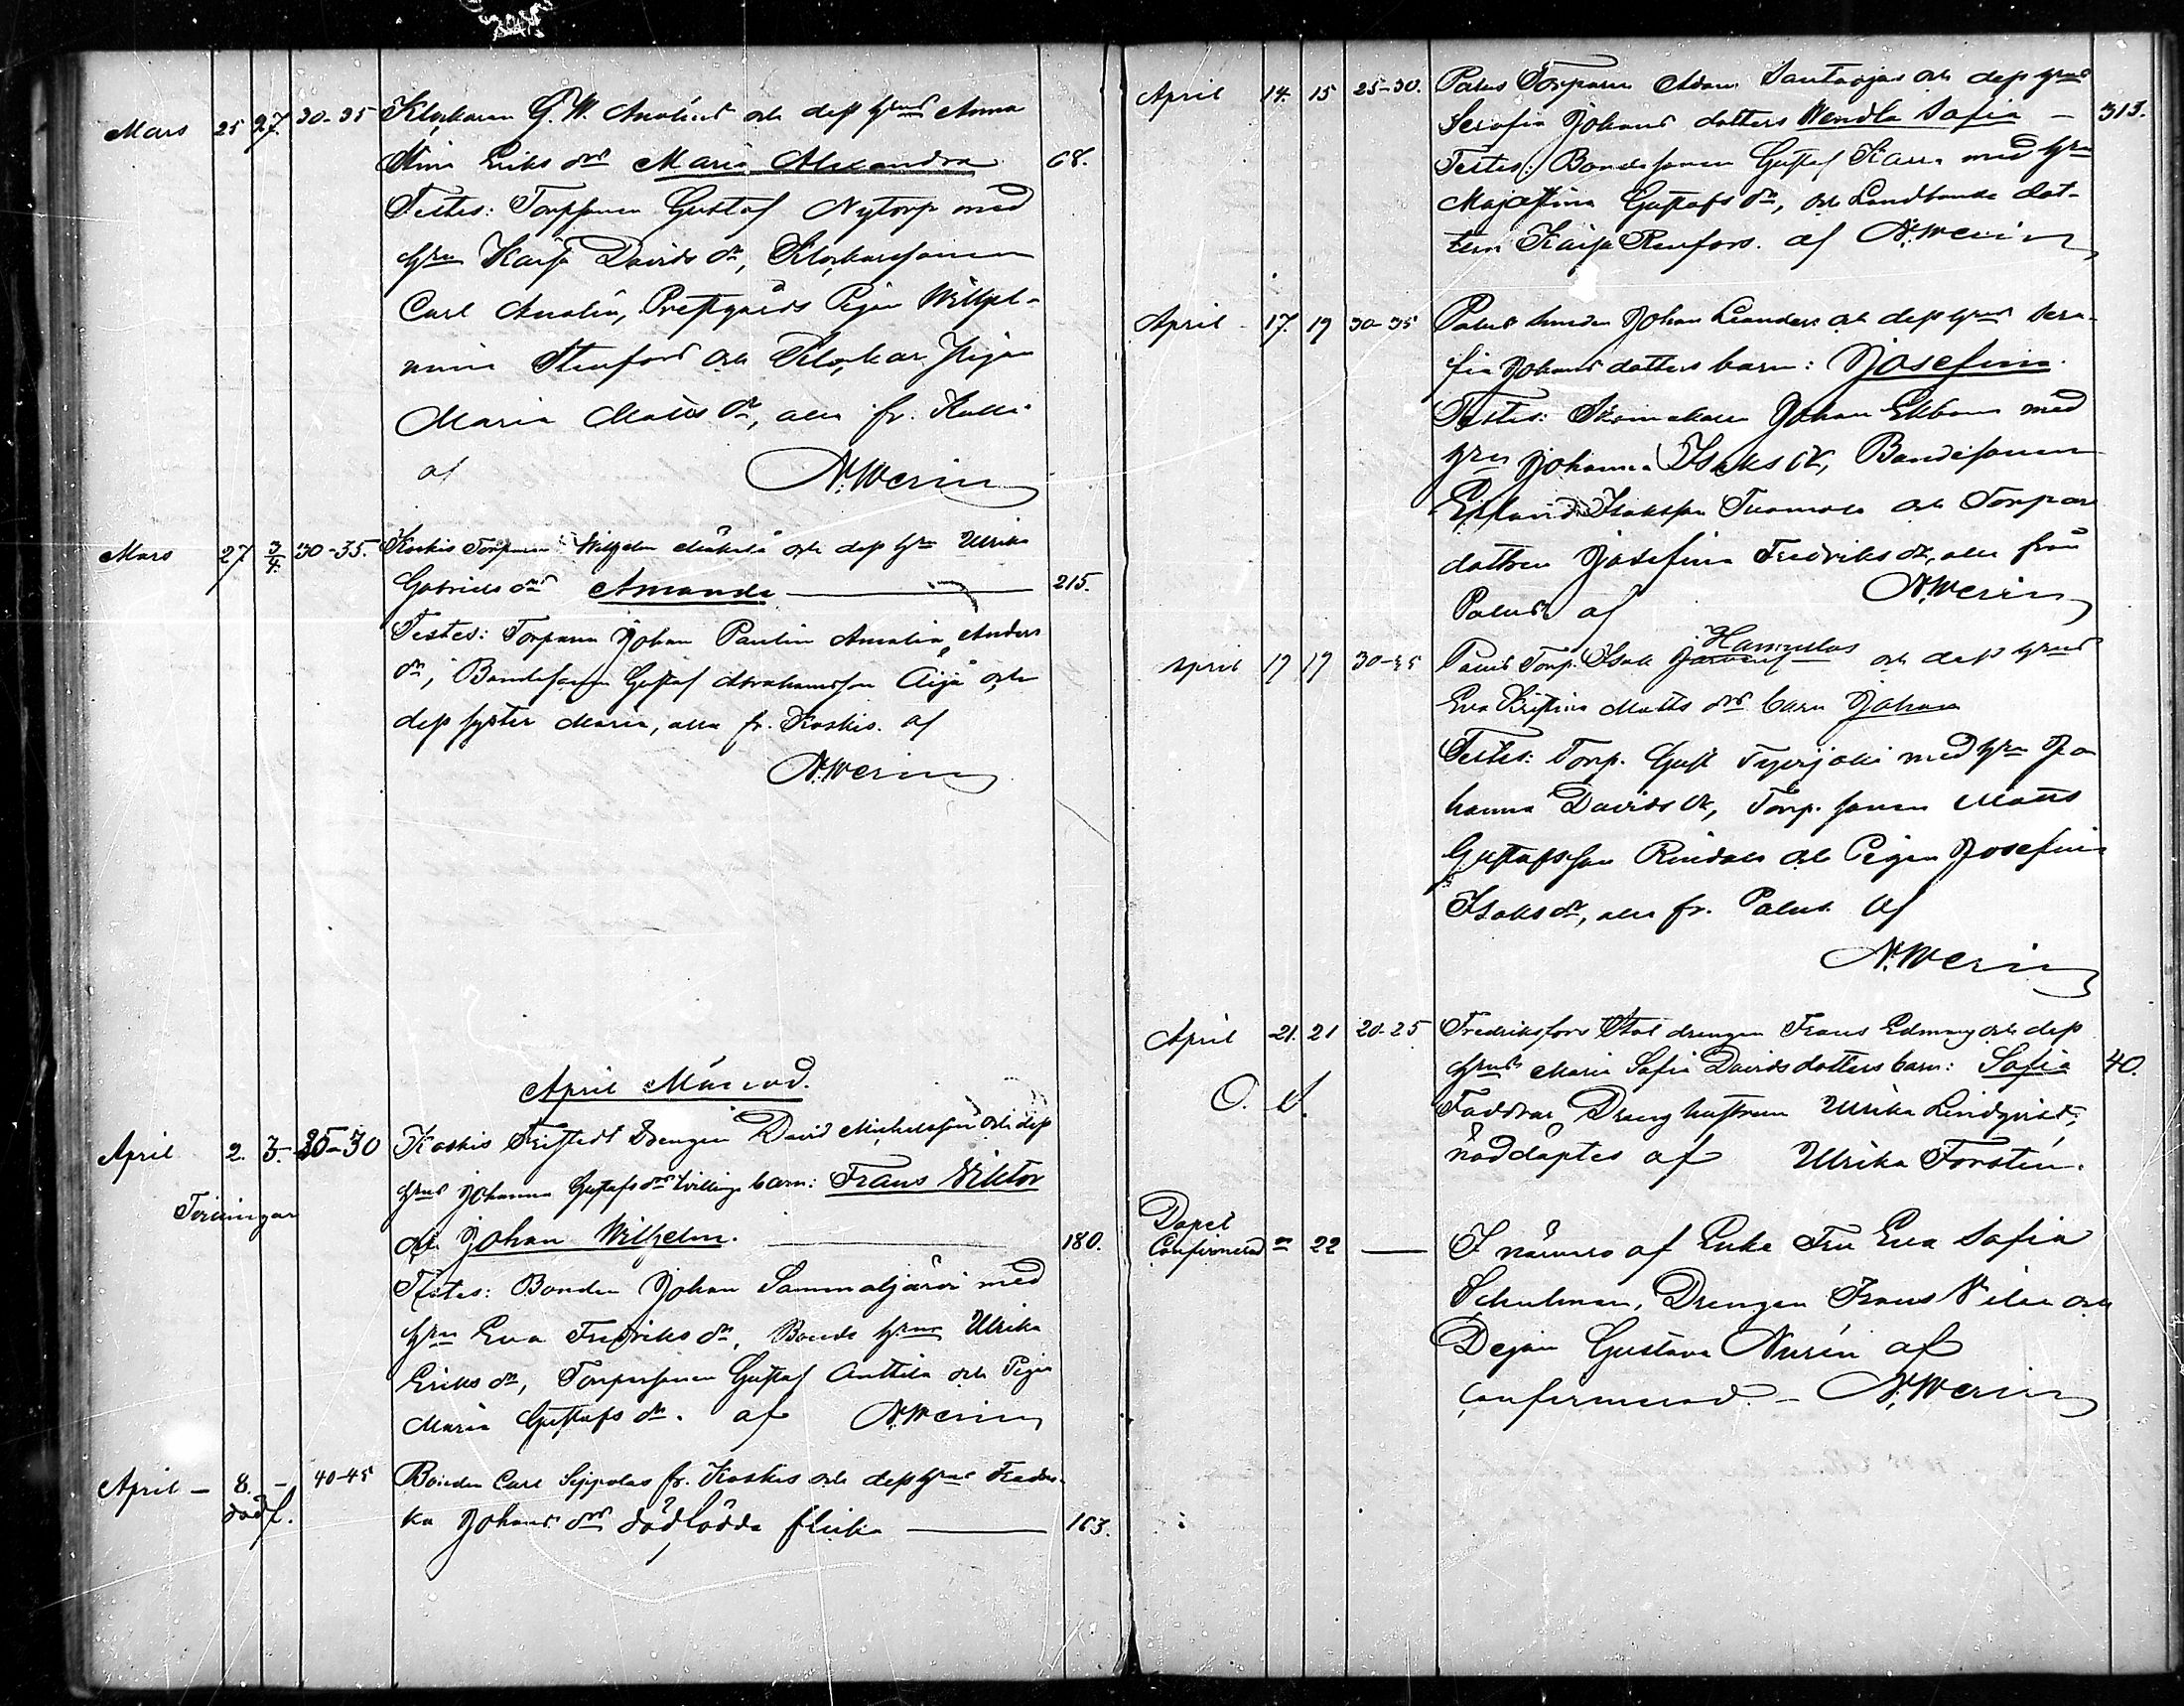 Mars 25 27. 30-35 Klockaren G. W. och dess hrus Anna
Stina Eriks drs Maria Alexandra 68.
Testes: Torpsonen Gustaf Nytorp med
hru Kajsa Davids dr, Klockarsonen
Carl Prestgårds Pigan Wilhel-
mina Stenfors och Klockar Pigan
Maria Matts dr, alla fr.
af N. Werin
Mars 27 3/4. 30-35. Koskis Torparen Wilhelm Mäkelä och dess hru Ulrika
Gabriels drs Amanda 215.
Testes: Torparen Johan Paulin Amalia Anders
dr, Bondesonen Gustaf Abrahamsson Äijä och
dess syster Maria, alla fr. Koskis. af
N. Werin
April Månad.
April 2. 3. 25-30 Koskis Drengen David Michelsson och dess
Tvillingar hrus Johanna Gustafs drs tvillinge barn: Frans Viktor
och Johan Wilhelm. 180.
Testes: Bonden Johan Sammaljärvi med
hru Eva Fredriks dr, Bonds hrus Ulrika
Eriks dr, Torparsonen Gustaf Anttila och Pigan
Maria Gustafs dr. af N. Werin
April - 8. - 40-45 Bonden Carl Seppälas fr. Koskis och dess hrus Fredri-
död f. ka Johans drs dödfödda flicka 163.
April 14. 15 25-30. Palus Torparen Adam Santaojas och dess hrus
Serafia Johans dotters Wendla Sofia - 313.
Testes: Bondesonen Gustaf Karra med hru
Majastina Gustafs dr, och Landbonde dot-
tern Kajsa Renfors. af N. Werin
April - 17. 19 30-35 Palus Johan Leanders och dess hrus Sera-
fia Johans dotters barn: Josefina.
Testes: Skomakaren Johan Ekbom med
hru Johanna Isaks dr, Bondesonen
Isaksson Tuomola och Torpare
dottren Josefina Fredriks dr, alla från
Palus. af N. Werin
Hannulas
April 17 19 30-35 Palus Torp. Isak och dess hrus
Eva Kristina Matts drs barn Johan
Testes: Torp. Gust med hru Jo
hanna Davids dr, Torp. sonen Matts
Gustafsson Rindala och Pigan Josefina
Isaks dr, alla fr. Palus. af
N. Werin
April 21. 21 20-25 Fredriksfors Stal drengen Frans Edman och dess
hrus Maria Sofia Davids dotters barn: Sofia 40.
O. Ä. Faddrar Dreng hustrun Ulrika Lindqvist,
nöddöptes af Ulrika Forstén.
Dopet
Confirmerad 22 I närvaro af Enke Fru Eva Sofia
Schulman, Drengen Frans och
Dejan Gustava Nurén af
Confirmerad. - N. Werin